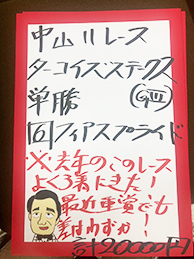 中山11レース
ターコイズステークス
単勝 GⅢ
回フィアスプライド
※去年のこのレース
よく3着にきた!
最近重賞でも
差わずか!
計20000円